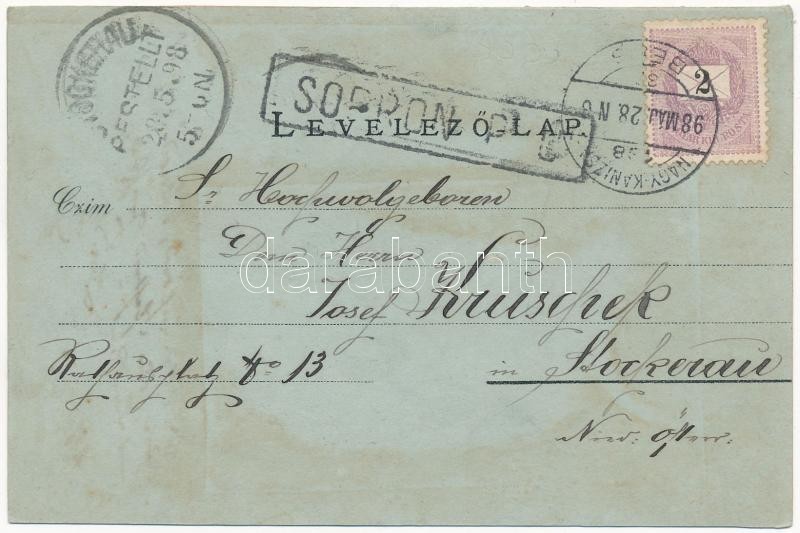 STOCKERAU
BESTELLT
28.5.98
5-6N.
SOPRON
2
NAGY-KANIZSA
BÉCS
98 MÁJ 28. N 6
LEVELEZŐ-LAP.
Sr Hochwohlgeboren
Czim
Dem Herrn
darabanth
Josef Kruschek
Rathausplatz No 13
in Stockerau
Nied: Öster: